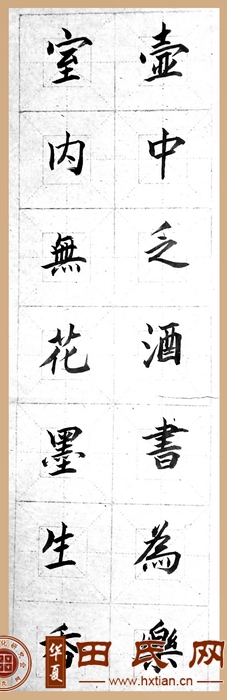 壺中乏酒書為樂
室内無花墨生香
华夏
田氏网
www.hxtian.cn